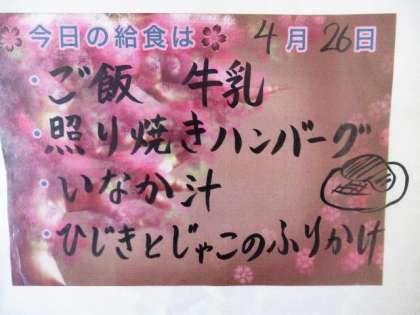 今日の給食は 4月26日
・ご飯 牛乳
・照り焼きハンバーグ
・いなか汁
・ひじきとじゃこのふりかけ